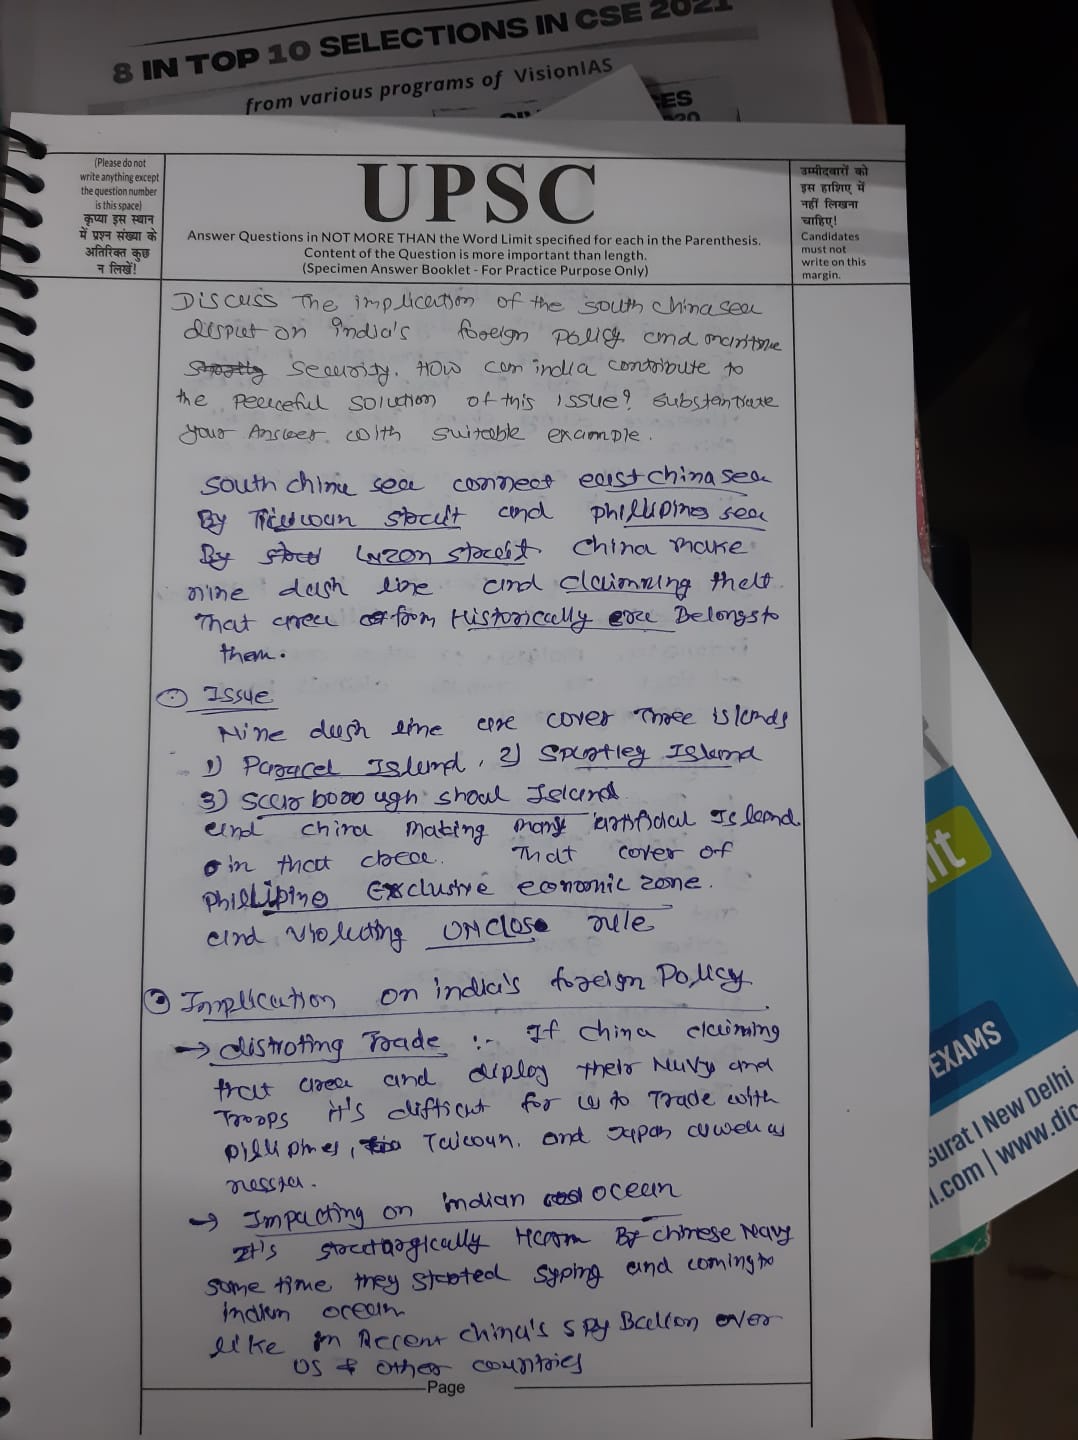 8 IN TOP 10 SELECTIONS IN CSE 2021
from various programs of VisionIAS
(Please do not
write anything except
the question number
is this space)
कृप्या इस स्थान
में प्रश्न संख्या के
अतिरिक्त कुछ
न लिखें!
UPSC
Answer Questions in NOT MORE THAN the Word Limit specified for each in the Parenthesis.
Content of the Question is more important than length.
(Specimen Answer Booklet - For Practice Purpose Only)
उम्मीदवारों को
इस हाशिए में
नहीं लिखना
चाहिए!
Candidates
must not
write on this
margin.
Discuss The implication of the south china sea
disput on india's foreign policy and maritme
security. How can india contribute to
the peaceful solution of this issue? substantiate
your Answer with suitable example.
south china sea connect east china sea
By Taiwan strait and phillipines sea
By Luzon strait. china make
nine dash line and claimning that
That area from Historically are Belongs to
them.
1) Issue
Nine dash line are cover Three islands
1) Paracel Island, 2) Spratley Island
3) Scarborough shoal Island
and china making many artificial Island
in that area. That cover of
phillipine Exclusive economic zone.
and violating UNCLOS rule
2) Implication on india's foreign Policy
→ distroting Trade :- If china claiming
that area and deploy their Navy and
Troops it's difficut for us to Trade with
Pillipines, Taiwan, and Japan as well as
→ Impacting on indian ocean
It's Harm By chinese Navy
some time they started syping and coming to
indian ocean
like in Recent china's spy Balloon over
US & other countries
Page
it
EXAMS
surat I New Delhi
l.com | www.dic